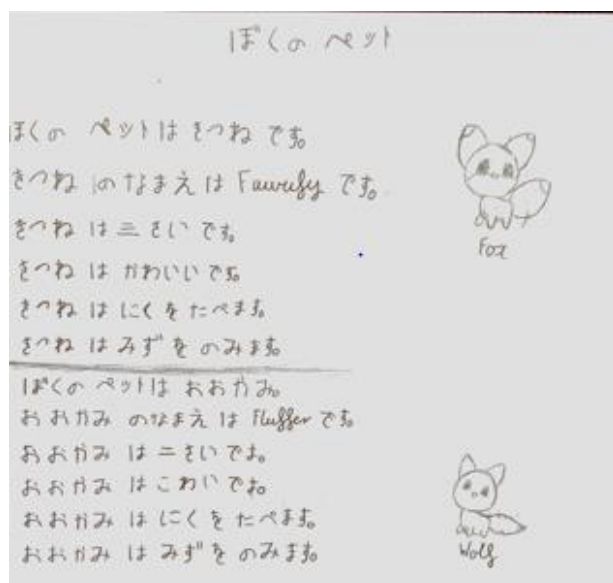 ぼくの ペット
ぼくの ペットは きつね です。
きつね のなまえ は です。
きつね は 三 さい です。
きつね は かわいい です。
きつね は にく を たべます。
きつね は みず を のみます。
Fox
ぼくの ペットは おおかみ。
おおかみ のなまえ は Fluffer です。
おおかみ は 二 さい です。
おおかみ は こわい です。
おおかみ は にく を たべます。
おおかみ は みず を のみます。
Wolf